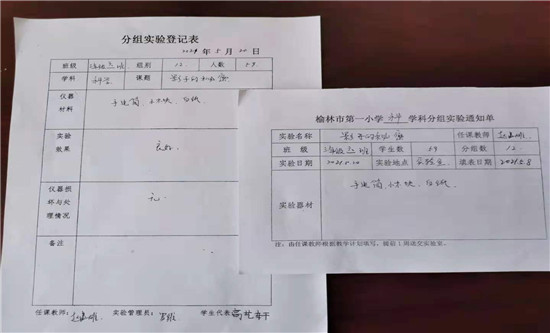 分组实验登记表
2021 年 5 月 20 日
班级 组别 12 人数 59
学科 科学 课题 影子的秘密
仪器材料 手电筒、小木块、白纸
实验效果 良好
仪器损坏与处理情况 无
备注
任课教师: 实验管理员: 学生代表
榆林市第一小学 科 学科分组实验通知单
实验名称 影子的秘密 任课教师
班级 学生数 59 分组数 12
实验日期 2021.5.20 实验地点 实验室 填表日期 2021.5.8
实验器材 手电筒、小木块、白纸
注:由任课教师根据教学计划填写,提前1周送交实验室。